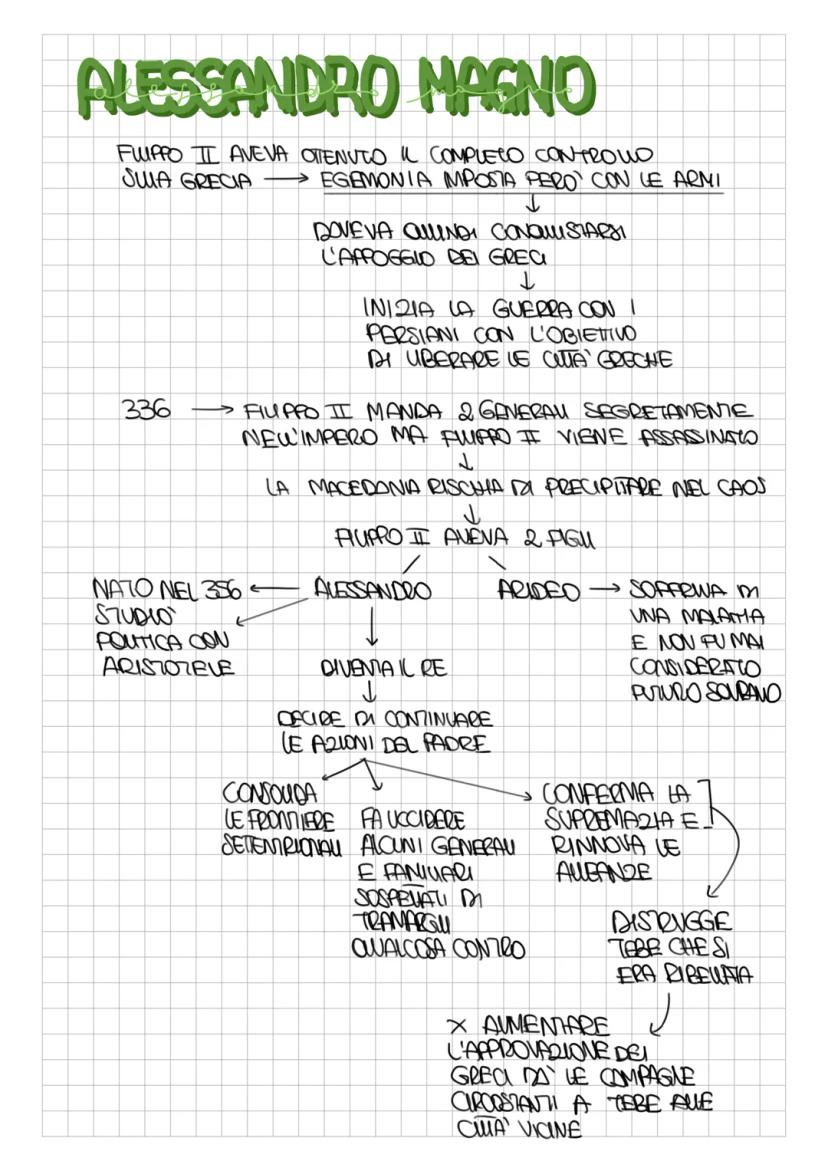 ALESSANDRO MAGNO
alessandro magno
FILIPPO II AVEVA OTTENUTO IL COMPLETO CONTROLLO
SULLA GRECIA → EGEMONIA IMPOSTA PERO' CON LE ARMI
↓
DOVEVA QUINDI CONQUISTARSI
L'APPOGGIO DEI GRECI
↓
INIZIA LA GUERRA CON I
PERSIANI CON L'OBIETTIVO
DI LIBERARE LE CITTA' GRECHE
336 → FILIPPO II MANDA 2 GENERALI SEGRETAMENTE
NELL'IMPERO MA FILIPPO II VIENE ASSASSINATO
↓
LA MACEDONIA RISCHIA DI PRECIPITARE NEL CAOS
↓
FILIPPO II AVEVA 2 FIGLI
NATO NEL 356 ← ALESSANDRO
STUDIO'
POLITICA CON
ARISTOTELE
ARIDEO → SOFFRIVA DI
UNA MALATTIA
E NON FU MAI
CONSIDERATO
FUTURO SOVRANO
↓
DIVENTA IL RE
↓
DECIDE DI CONTINUARE
LE AZIONI DEL PADRE
CONSOLIDA
LE FRONTIERE
SETTENTRIONALI
FA UCCIDERE
ALCUNI GENERALI
E FAMILIARI
SOSPETTATI DI
TRAMARGLI
QUALCOSA CONTRO
CONFERMA LA
SUPREMAZIA E
RINNOVA LE
ALLEANZE
DISTRUGGE
TEBE CHE SI
ERA RIBELLATA
X AUMENTARE
L'APPROVAZIONE DEI
GRECI DA' LE COMPAGNE
CIRCOSTANTI A TEBE ALLE
CITTA' VICINE